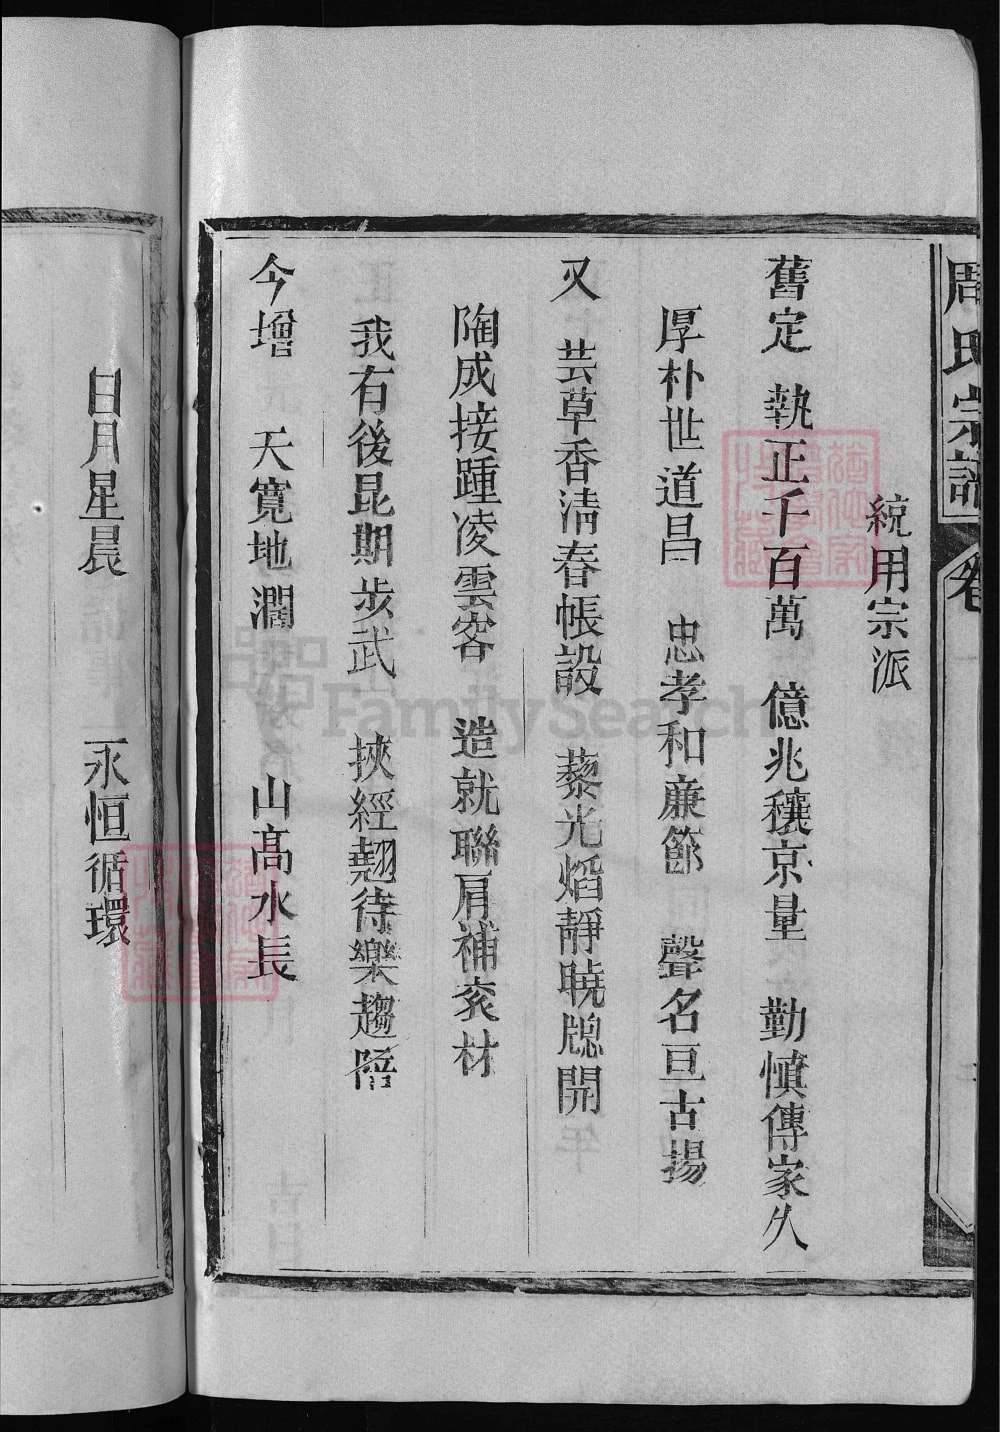 周氏宗譜 卷
統用宗派
舊定 執正千百萬 億兆穰京量 勤慎傳家久
厚朴世道昌 忠孝和廉節 聲名亘古揚
又 芸草香清春帳設 藜光焰靜曉牕開
陶成接踵凌雲客 造就聯肩補衮材
我有後昆期步武 挾經翹待樂趨陪
今增 天寬地濶 山高水長
日月星晨 永恒循環
FamilySearch